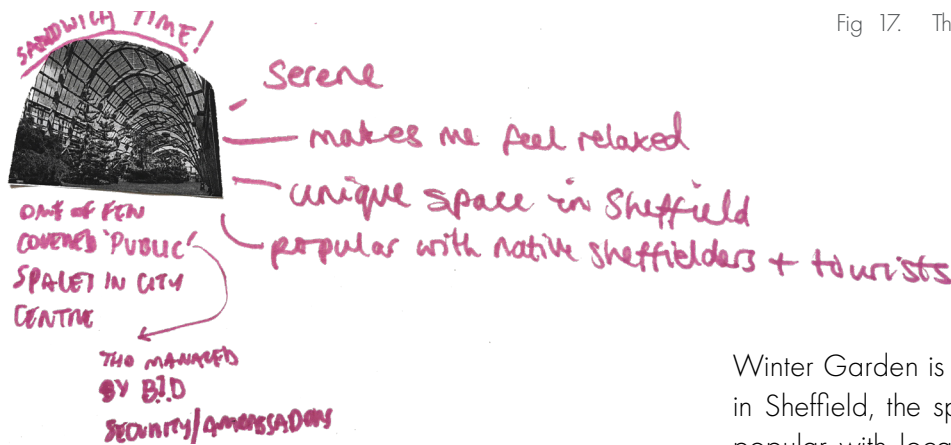 SANDWICH TIME!
Fig 17. Th
Serene
makes me feel relaxed
unique space in Sheffield
popular with native sheffielders + tourists
ONE OF FEW
COVERED 'PUBLIC'
SPACES IN CITY
CENTRE
THO MANAGED
BY B.I.D
SECURITY/AMBASSADORS
Winter Garden is
in Sheffield, the sp
popular with loca